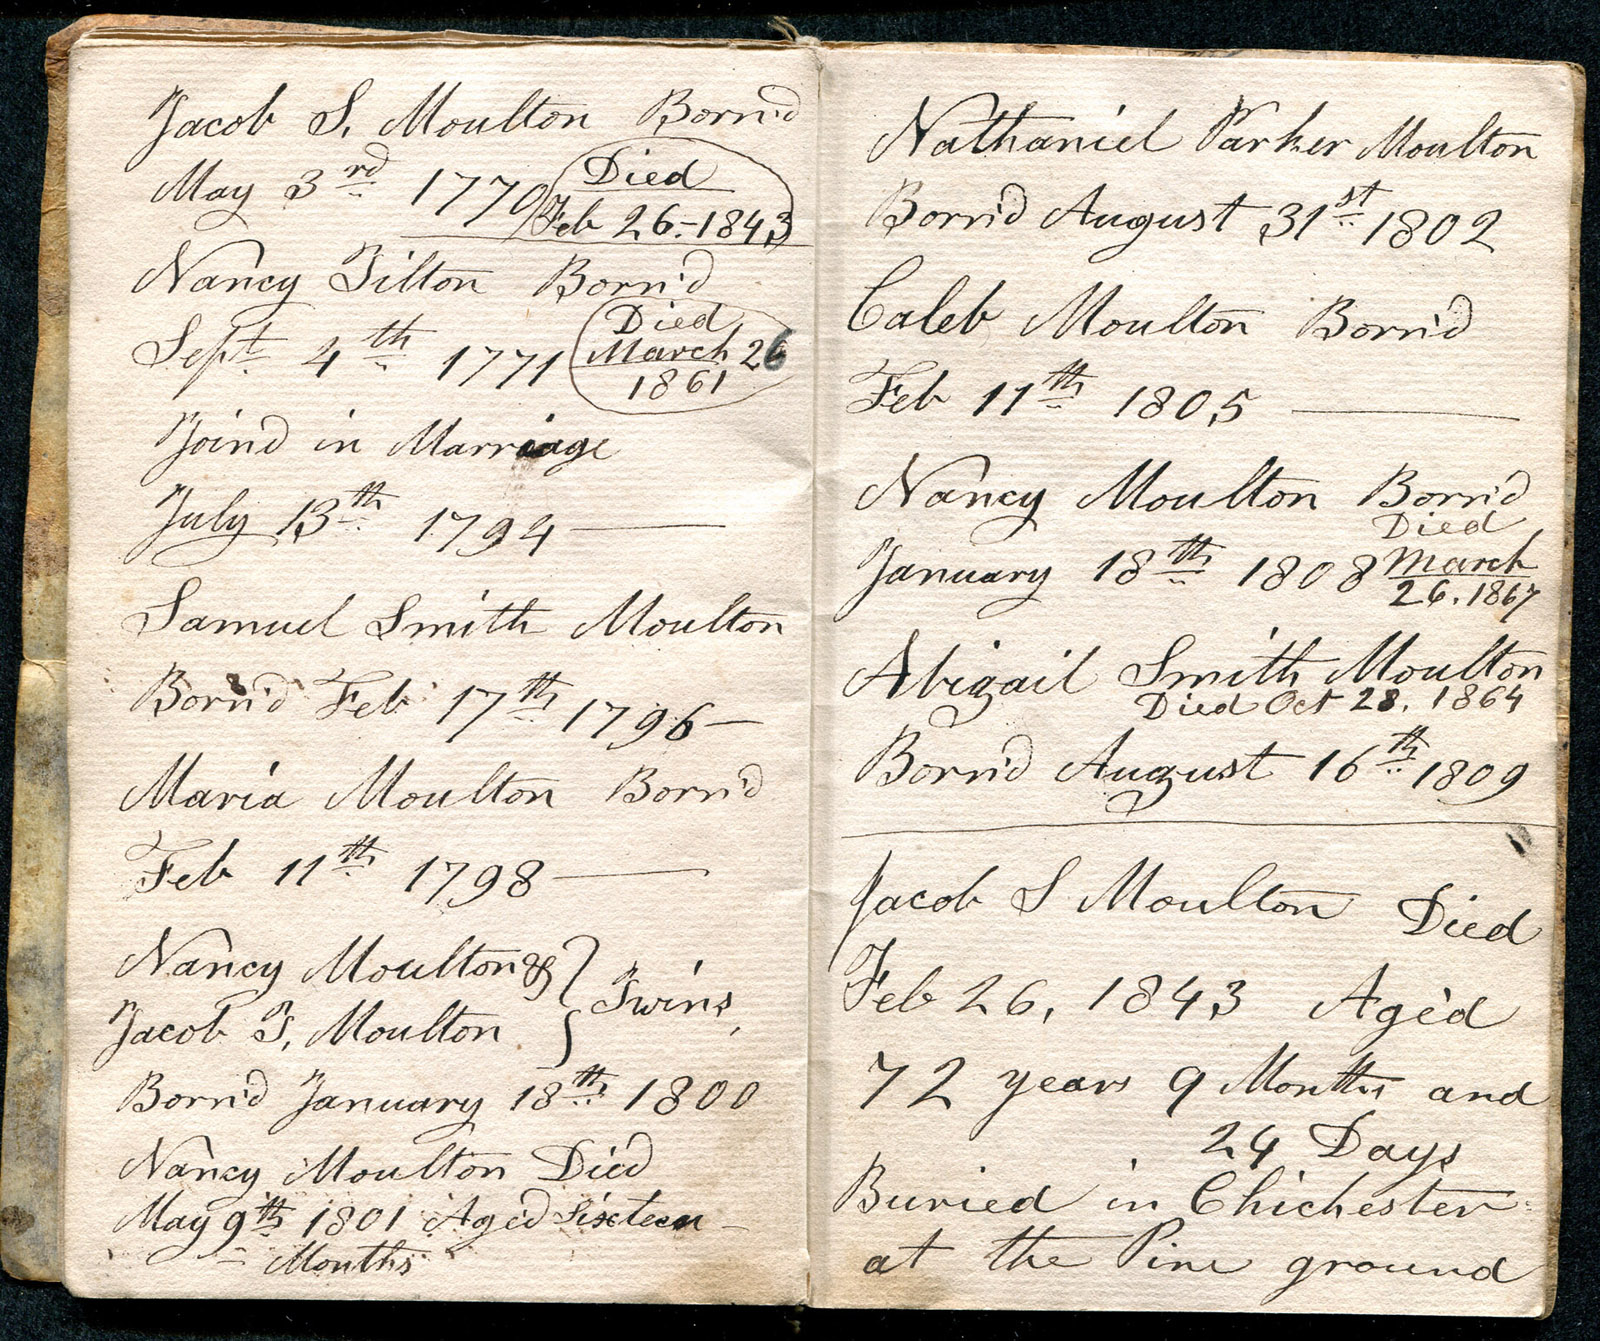 Jacob S. Moulton Born'd
May 3rd 1770 Died
Feb 26.-1843
Nancy Tilton Born'd
Sept 4th 1771 Died
March 26
1861
Joind in Marriage
July 13th 1794
Samuel Smith Moulton
Born'd Feb 17th 1796
Maria Moulton Born'd
Feb 11th 1798
Nancy Moulton &
Jacob S. Moulton } Twins,
Born'd January 18th 1800
Nancy Moulton Died
May 9th 1801 Aged Sixteen
Months
Nathaniel Parker Moulton
Born'd August 31st 1802
Caleb Moulton Born'd
Feb 11th 1805
Nancy Moulton Born'd
Died
January 18th 1808 March
26. 1867
Abigail Smith Moulton
Died Oct 28. 1864
Born'd August 16th 1809
Jacob S Moulton Died
Feb 26, 1843 Aged
72 years 9 Months and
24 Days
Buried in Chichester
at the Pine ground